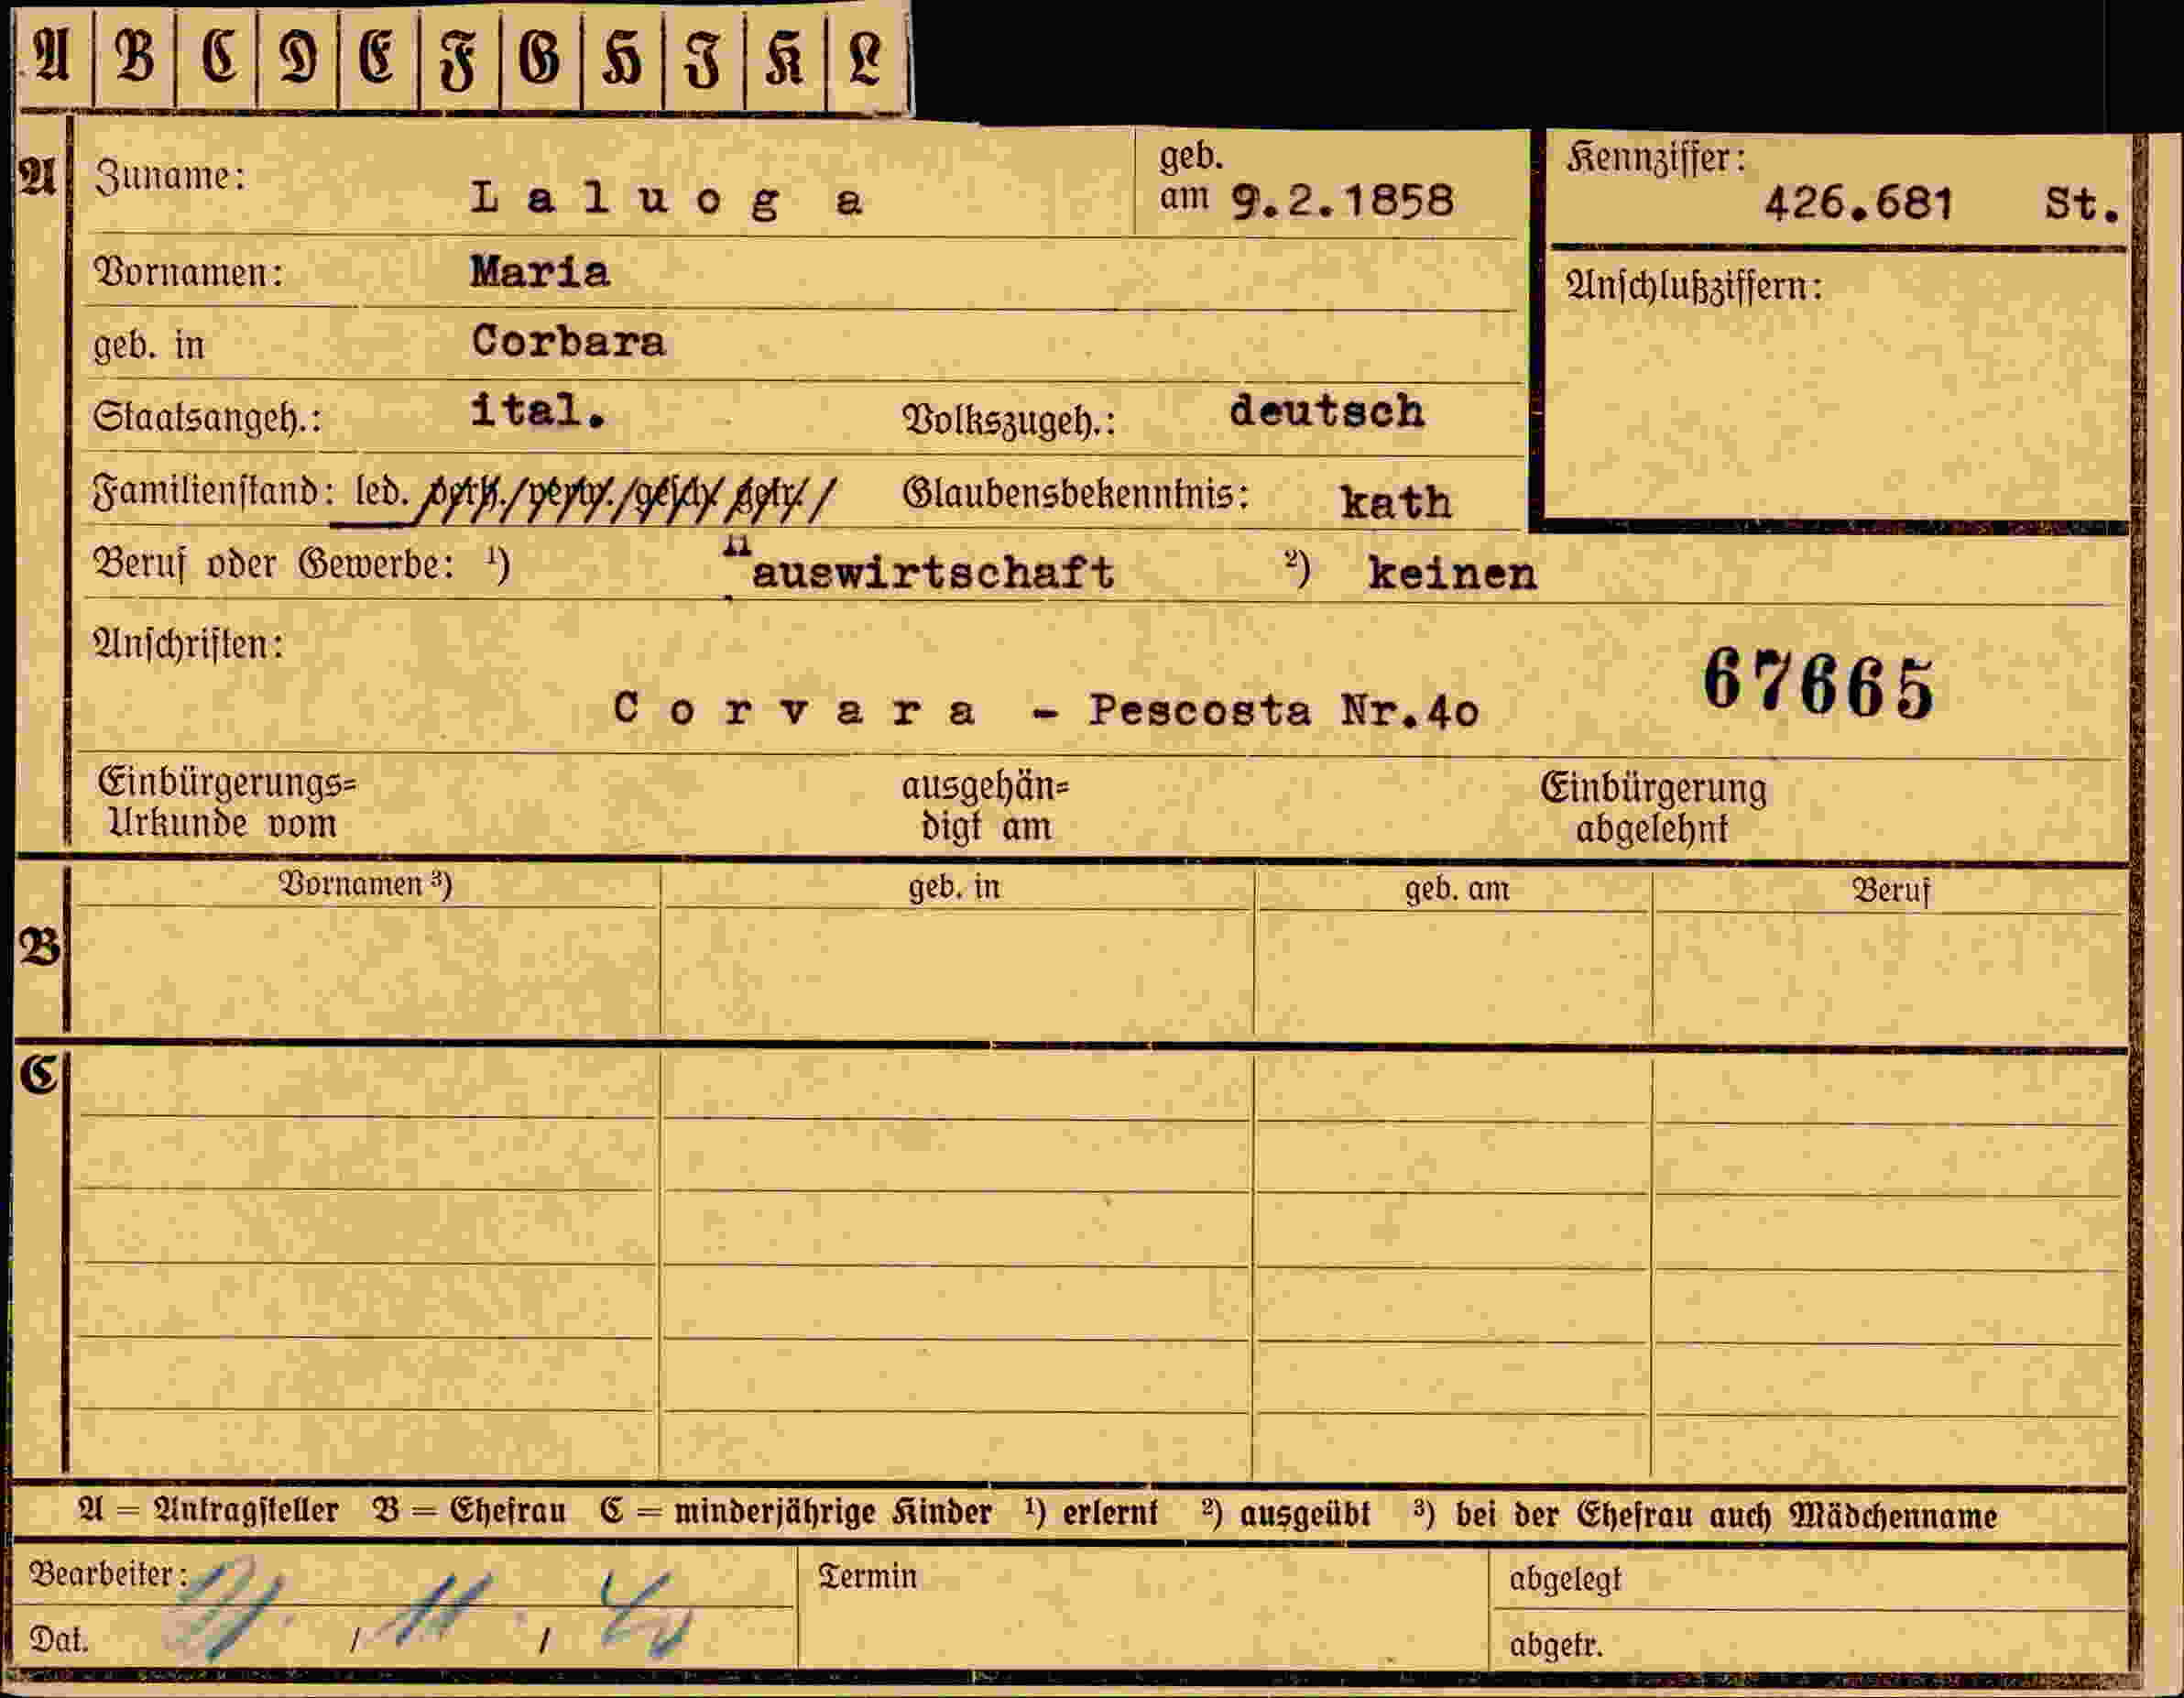 A B C D E F G H I K L
A Zuname: Laluoga geb. am 9.2.1858 Kennziffer: 426.681 St.
Vornamen: Maria Anschlußziffern:
geb. in Corbara
Staatsangeh.: ital. Volkszugeh.: deutsch
Familienstand: led. verh./verw./gesch/ getr./ Glaubensbekenntnis: kath
Beruf oder Gewerbe: ¹) Hauswirtschaft ²) keinen
Anschriften:
67665
Corvara - Pescosta Nr.4o
Einbürgerungs= Urkunde vom ausgehän= digt am Einbürgerung abgelehnt
Vornamen ³) geb. in geb. am Beruf
B
C
A = Antragsteller B = Ehefrau C = minderjährige Kinder ¹) erlernt ²) ausgeübt ³) bei der Ehefrau auch Mädchenname
Bearbeiter: Termin abgelegt
Dat. / 11 / 40 abgetr.